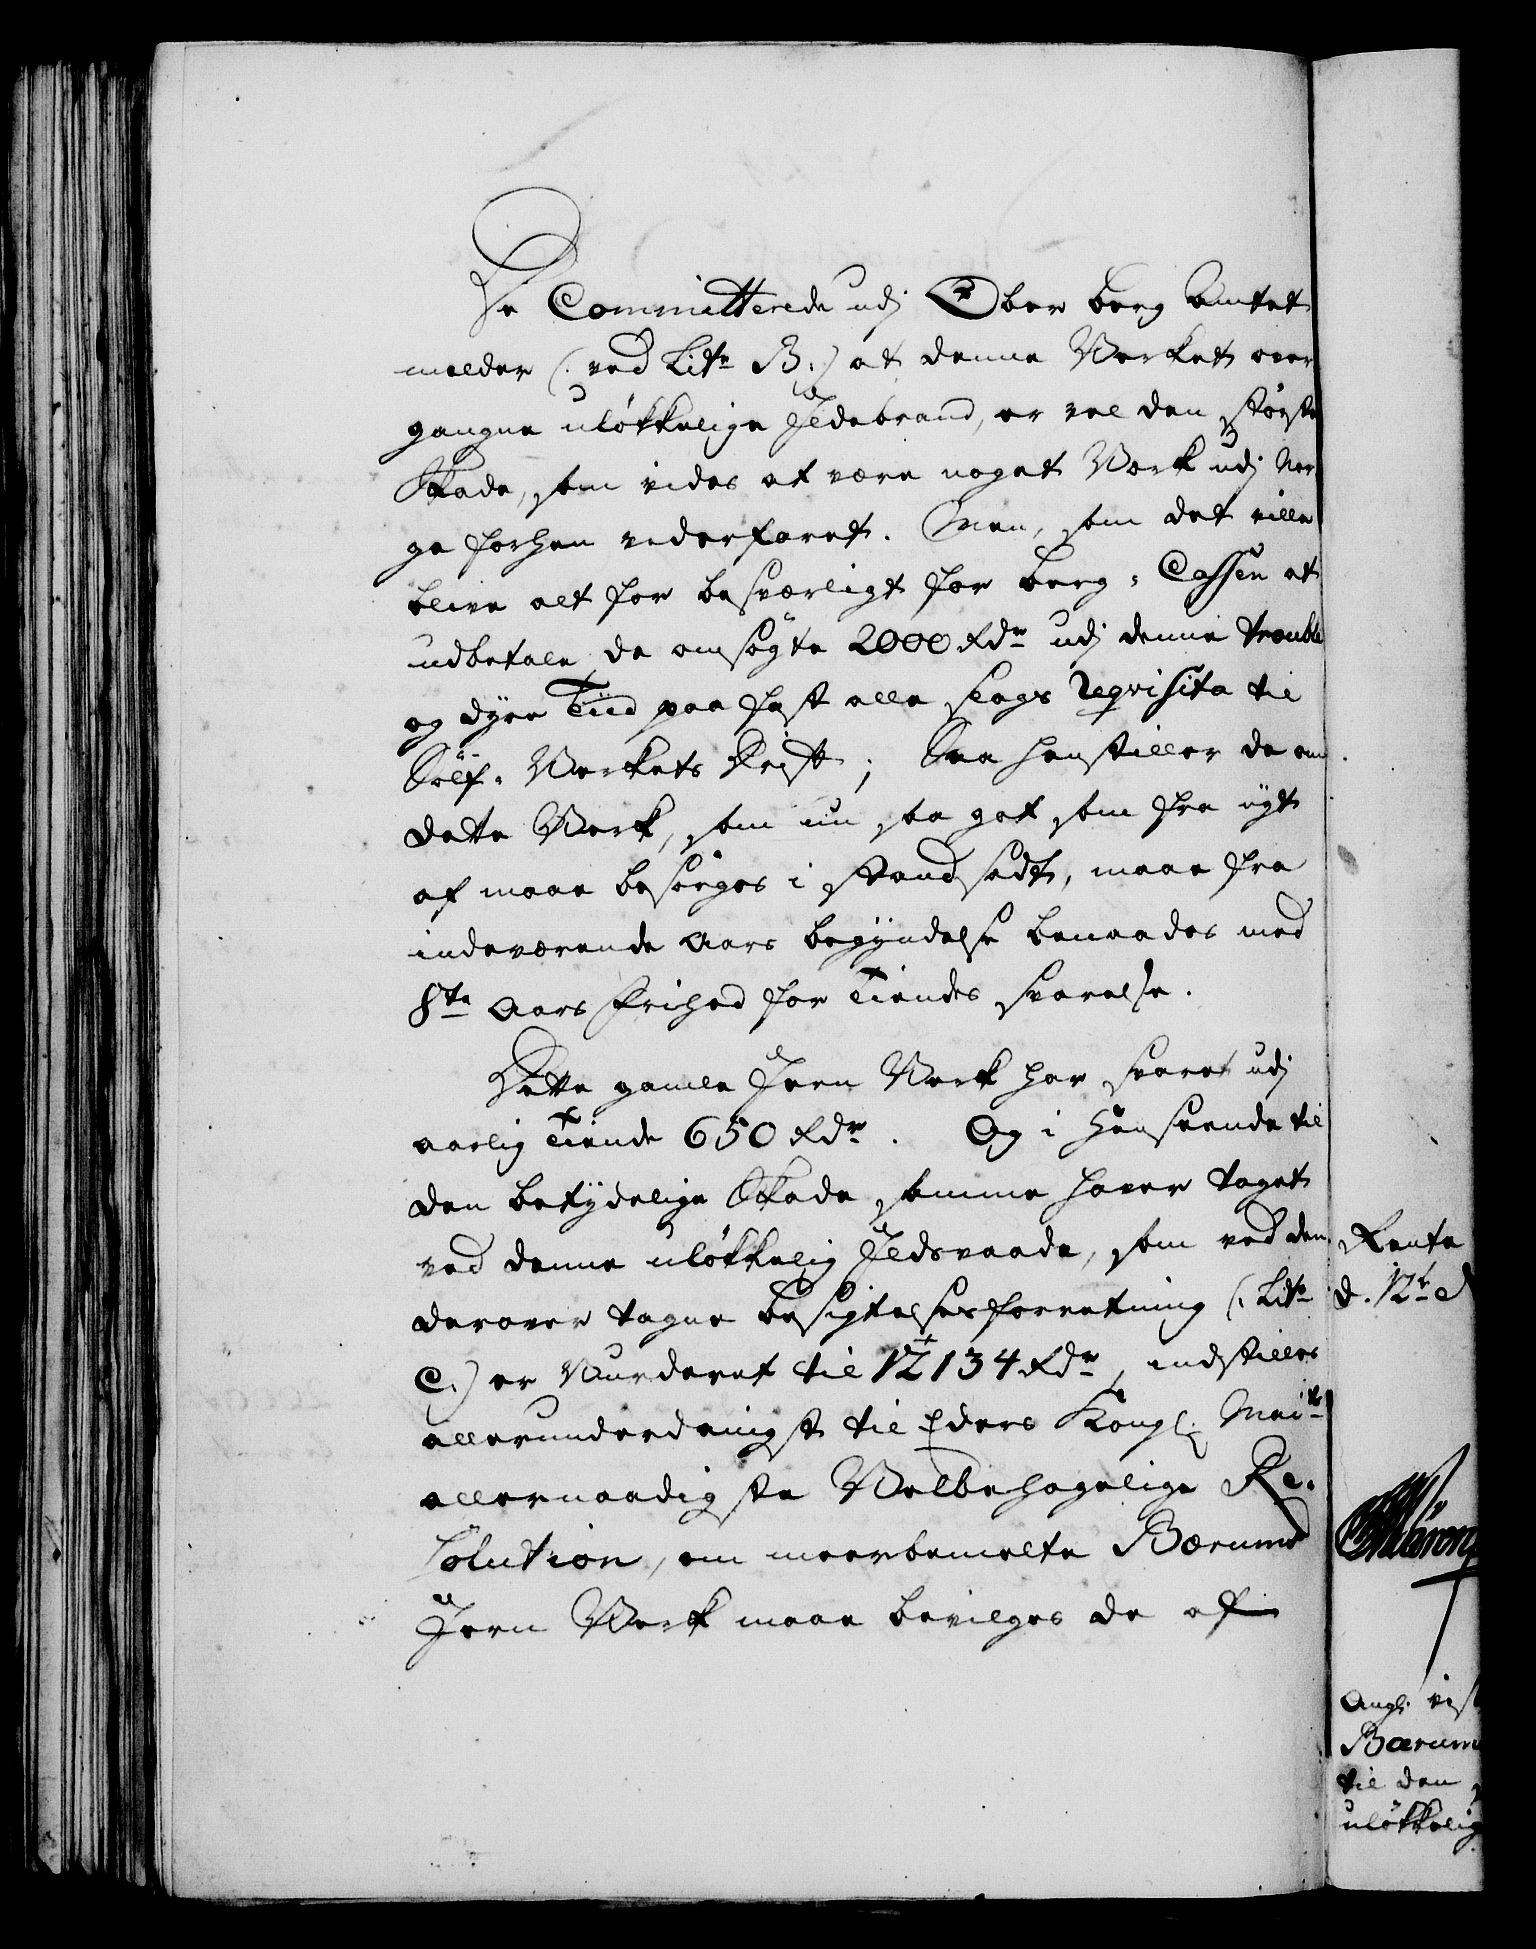 De Committerede udj Ober Berg Amtet
melder (: ved Litr B:) at denne Verket over
gangne uløkkelige Ildebrand, er vel den største
Skade, som vides at være noget Verk udj Nor
ge forhen vederfaret. Men, som det ville
blive alt for besværligt for Berg-Cassen at
udbetale de omsøgte 2000 Rdr udj denne trouble
og dyre Tiid paa fast alle slags reqvisita til
Sølf-Verkets Drift; Saa henstiller de om
dette Verk, som nu saa got som fra nyt
af maae besørges i stand sadt, maae fra
indeværende Aars begyndelse benaades med
8te Aars Frihed for Tiendes svarelse.
Dette gamle Jern Verk har svaret udj
aarlig Tiende 650 Rdr. Og i Henseende til
den betydelige Skade samme haver taget
ved denne uløkkelig Ildsvaade, som ved den
derover tagne besigtelsesforretning (: Litr
C:) er Vurderet til 12134 Rdr, indstilles
allerunderdanigst til Eders Kongl: Maits
allernaadigste Velbehagelige Re-
solution, om meerbemelte Bærums
Jern Verk maae bevilges de af
Rente
d. 12t
Angl: vist
Bærums
til den
uløkkelig